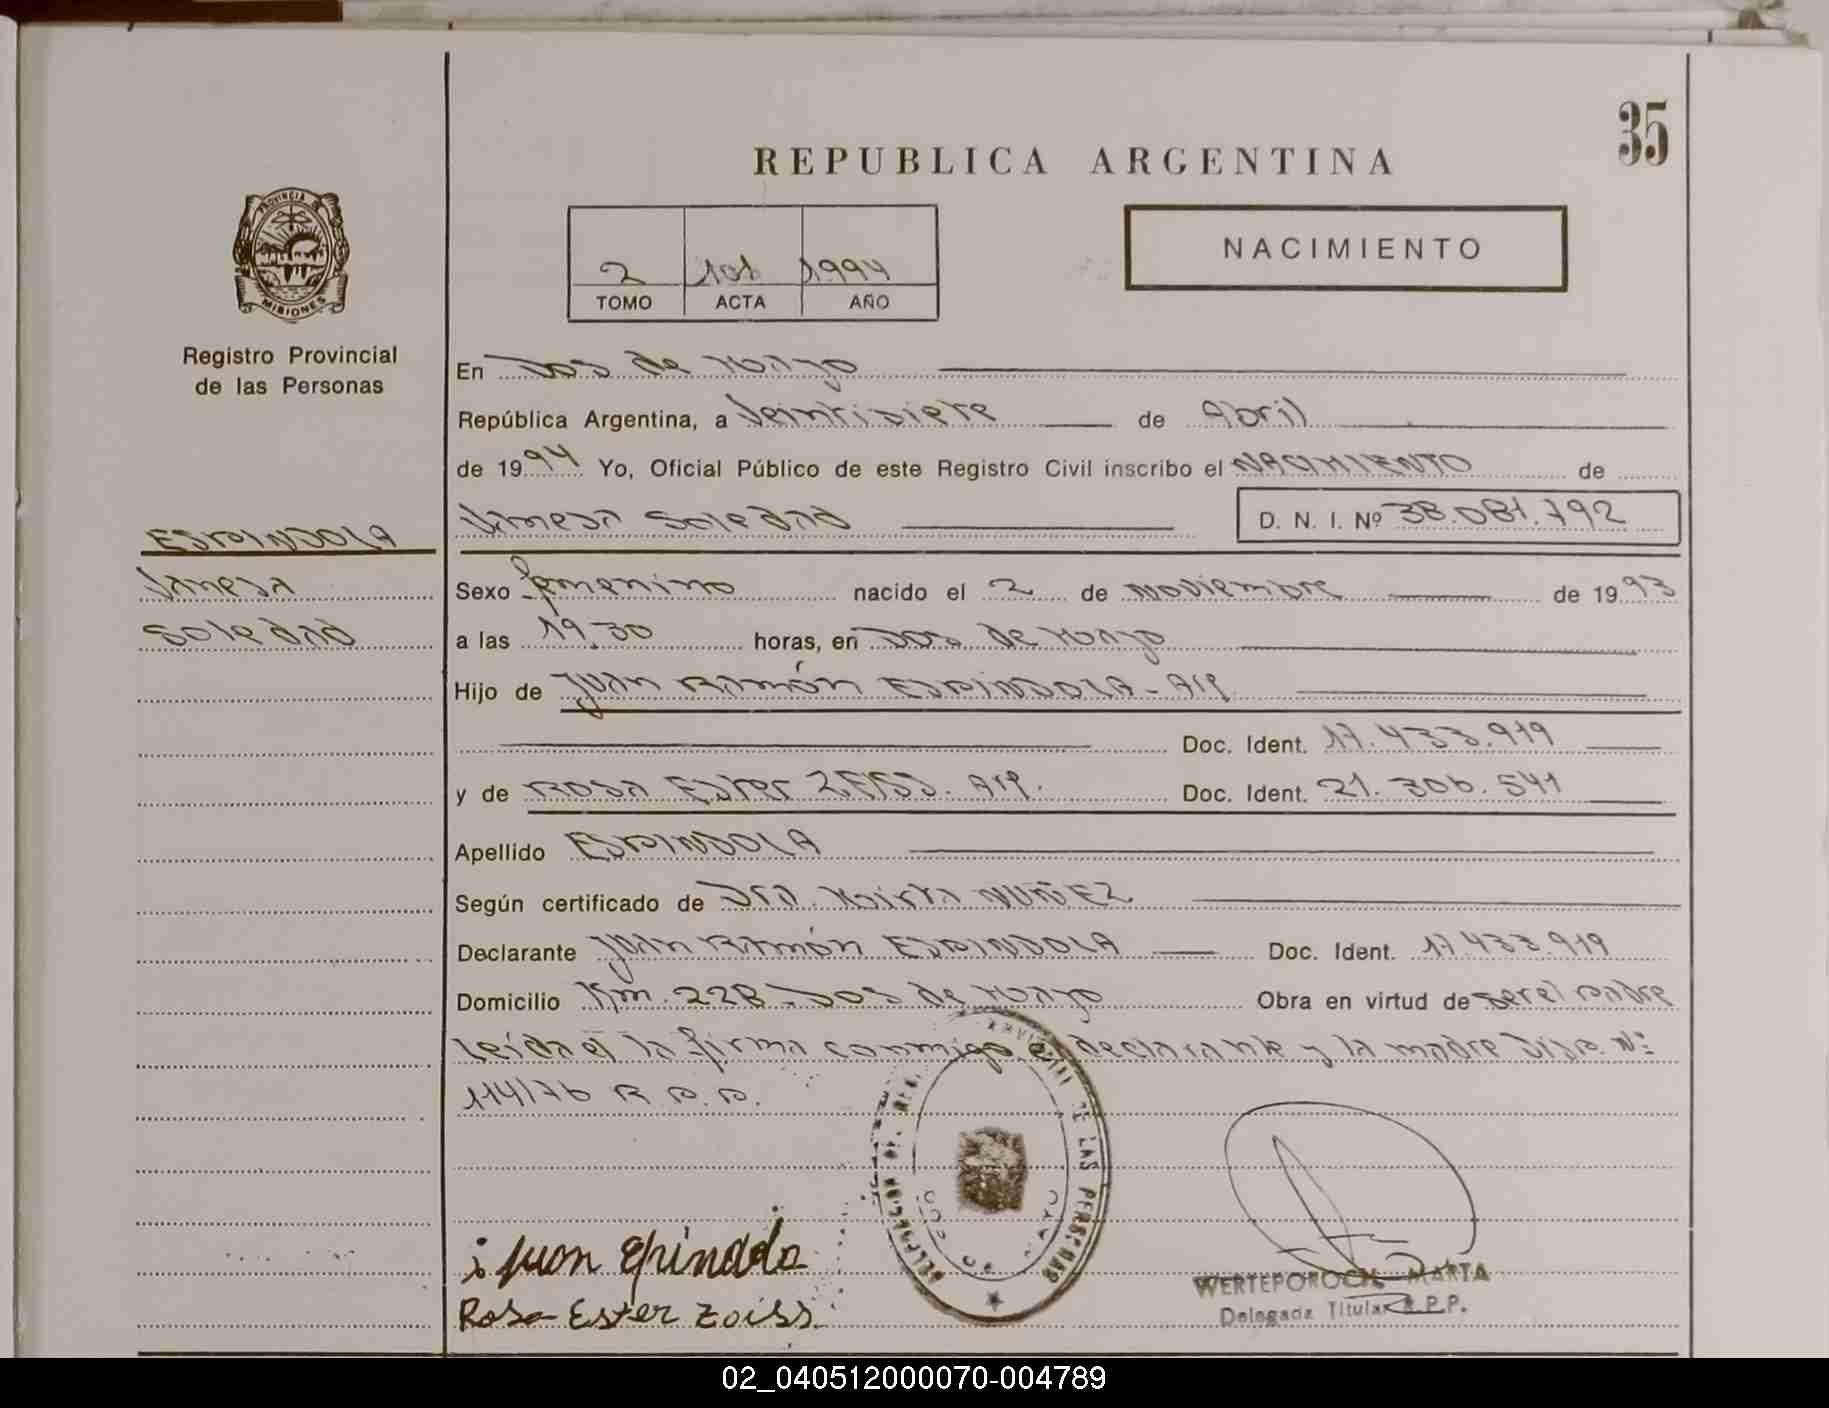 35
REPUBLICA ARGENTINA
PROVINCIA DE
MISIONES
2 101 1994
TOMO ACTA AÑO
NACIMIENTO
Registro Provincial
de las Personas
En Dos de Mayo
República Argentina, a Veintisiete de Abril
de 1994 Yo, Oficial Público de este Registro Civil inscribo el NACIMIENTO de
Vanesa Soledad D. N. I. Nº 38.081.792
ESPINDOLA
Vanesa
Soledad
Sexo femenino nacido el 2 de Noviembre de 1993
a las 19.30 horas, en Dos de Mayo
Hijo de Juan Ramón ESPINDOLA - Arg.
Doc. Ident. 17.433.919
y de Rosa Ester ZEISS. Arg. Doc. Ident. 21.306.541
Apellido ESPINDOLA
Según certificado de Dra. Mirta NUÑEZ
Declarante Juan Ramón ESPINDOLA Doc. Ident. 17.433.919
Domicilio Km. 228 - Dos de Mayo Obra en virtud de ser el padre
Leída el la firma conmigo el declarante y la madre Disp. Nº
114/76 R.P.P.
Juan Epindola
Rosa Ester Zeiss.
DE LAS PERSONAS
DOS DE MAYO
WERTEPOROCH MARTA
Delegada Titular R.P.P.
02_040512000070-004789